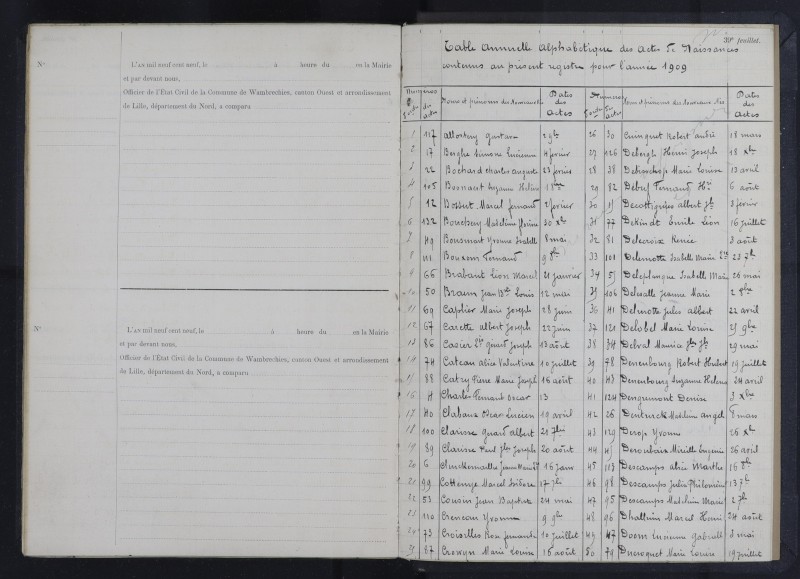 N°
L'AN mil neuf cent neuf, le à heure du en la Mairie
et par devant nous,
Officier de l'État Civil de la Commune de Wambrechies, canton Ouest et arrondissement
de Lille, département du Nord, a comparu
N°
L'AN mil neuf cent neuf, le à heure du en la Mairie
et par devant nous,
Officier de l'État Civil de la Commune de Wambrechies, canton Ouest et arrondissement
de Lille, département du Nord, a comparu
30e feuillet.
Table Annuelle Alphabétique des Actes de Naissances
contenus au présent registre pour l'année 1909
Numéros
Noms et prénoms des Nouveaux-nés
Dates des Actes
Numéros
Noms et prénoms des Nouveaux-nés
Dates des Actes
1 117 Gustave
2 17 Berghe Simone Lucienne 4 février
3 22 Bochard Charles Auguste 23 février
4 105 Bonnart Suzanne
5 12 Bossut Marcel Fernand 2 février
6 132 Madeleine 30 Xbre
7 49 Bousmart Yvonne Isabelle 8 mai
8 111 Fernand 9 8bre
9 66 Brabant Léon Marcel 21 janvier
10 50 Braem Jean Bte Louis 12 mai
11 69 Caplier Marie Joseph 28 juin
12 67 Carette Albert Joseph 22 juin
13 86 Casier Joseph 13 août
14 74 Cateau Alice Valentine 10 juillet
15 88 Catry Pierre Marie Joseph 16 août
16 Charlet Fernand Oscar 13
17 40 Clabaux Oscar Lucien 19 avril
18 100 Clarisse Albert
19 89 Clarisse Paul Joseph 20 août
20 6 16 janv
21 99 Cottenye Marcel Isidore 17 7bre
22 53 Cousin Jean Baptiste 24 mai
23 110 Yvonne 9 9bre
24 73 Croiselles Rose Fernande 10 juillet
25 87 Crowyn Marie Louise 16 août
26 30 Cuinguet Robert André 18 mars
27 126 Debergh Henri Joseph 18 Xbre
28 38 Debisschop Marie Louise 13 avril
29 82 Fernand 6 août
30 Decottignies Albert 3 février
31 77 Dekindt Emile Léon 16 juillet
32 81 Delecroix Renée 3 août
33 101 Delemotte Isabelle Marie 23 7bre
34 51 Delesplanque Isabelle Marie 26 mai
35 106 Delsalle Jeanne Marie 2 8bre
36 41 Delmotte Jules Albert 22 avril
37 121 Delobel Marie Louise 25 9bre
38 54 Delval 29 mai
39 78 Denenbourg Robert Hubert 19 juillet
40 43 Denenbourg Suzanne Helena 24 avril
41 124 Dengremont Denise 3 Xbre
42 26 Madeleine Angel 8 mars
43 129 Yvonne 26 Xbre
44 Mireille Eugénie 26 avril
45 113 Descamps Alice Marthe 16 8bre
46 98 Descamps Julia Philomène 13 7bre
47 95 Descamps Madeleine Marie 2 7bre
48 96 Dhalluin Marcel Henri 24 août
49 47 Doom Lucienne Gabrielle 3 mai
50 79 Ducroquet Marie Louise 19 juillet